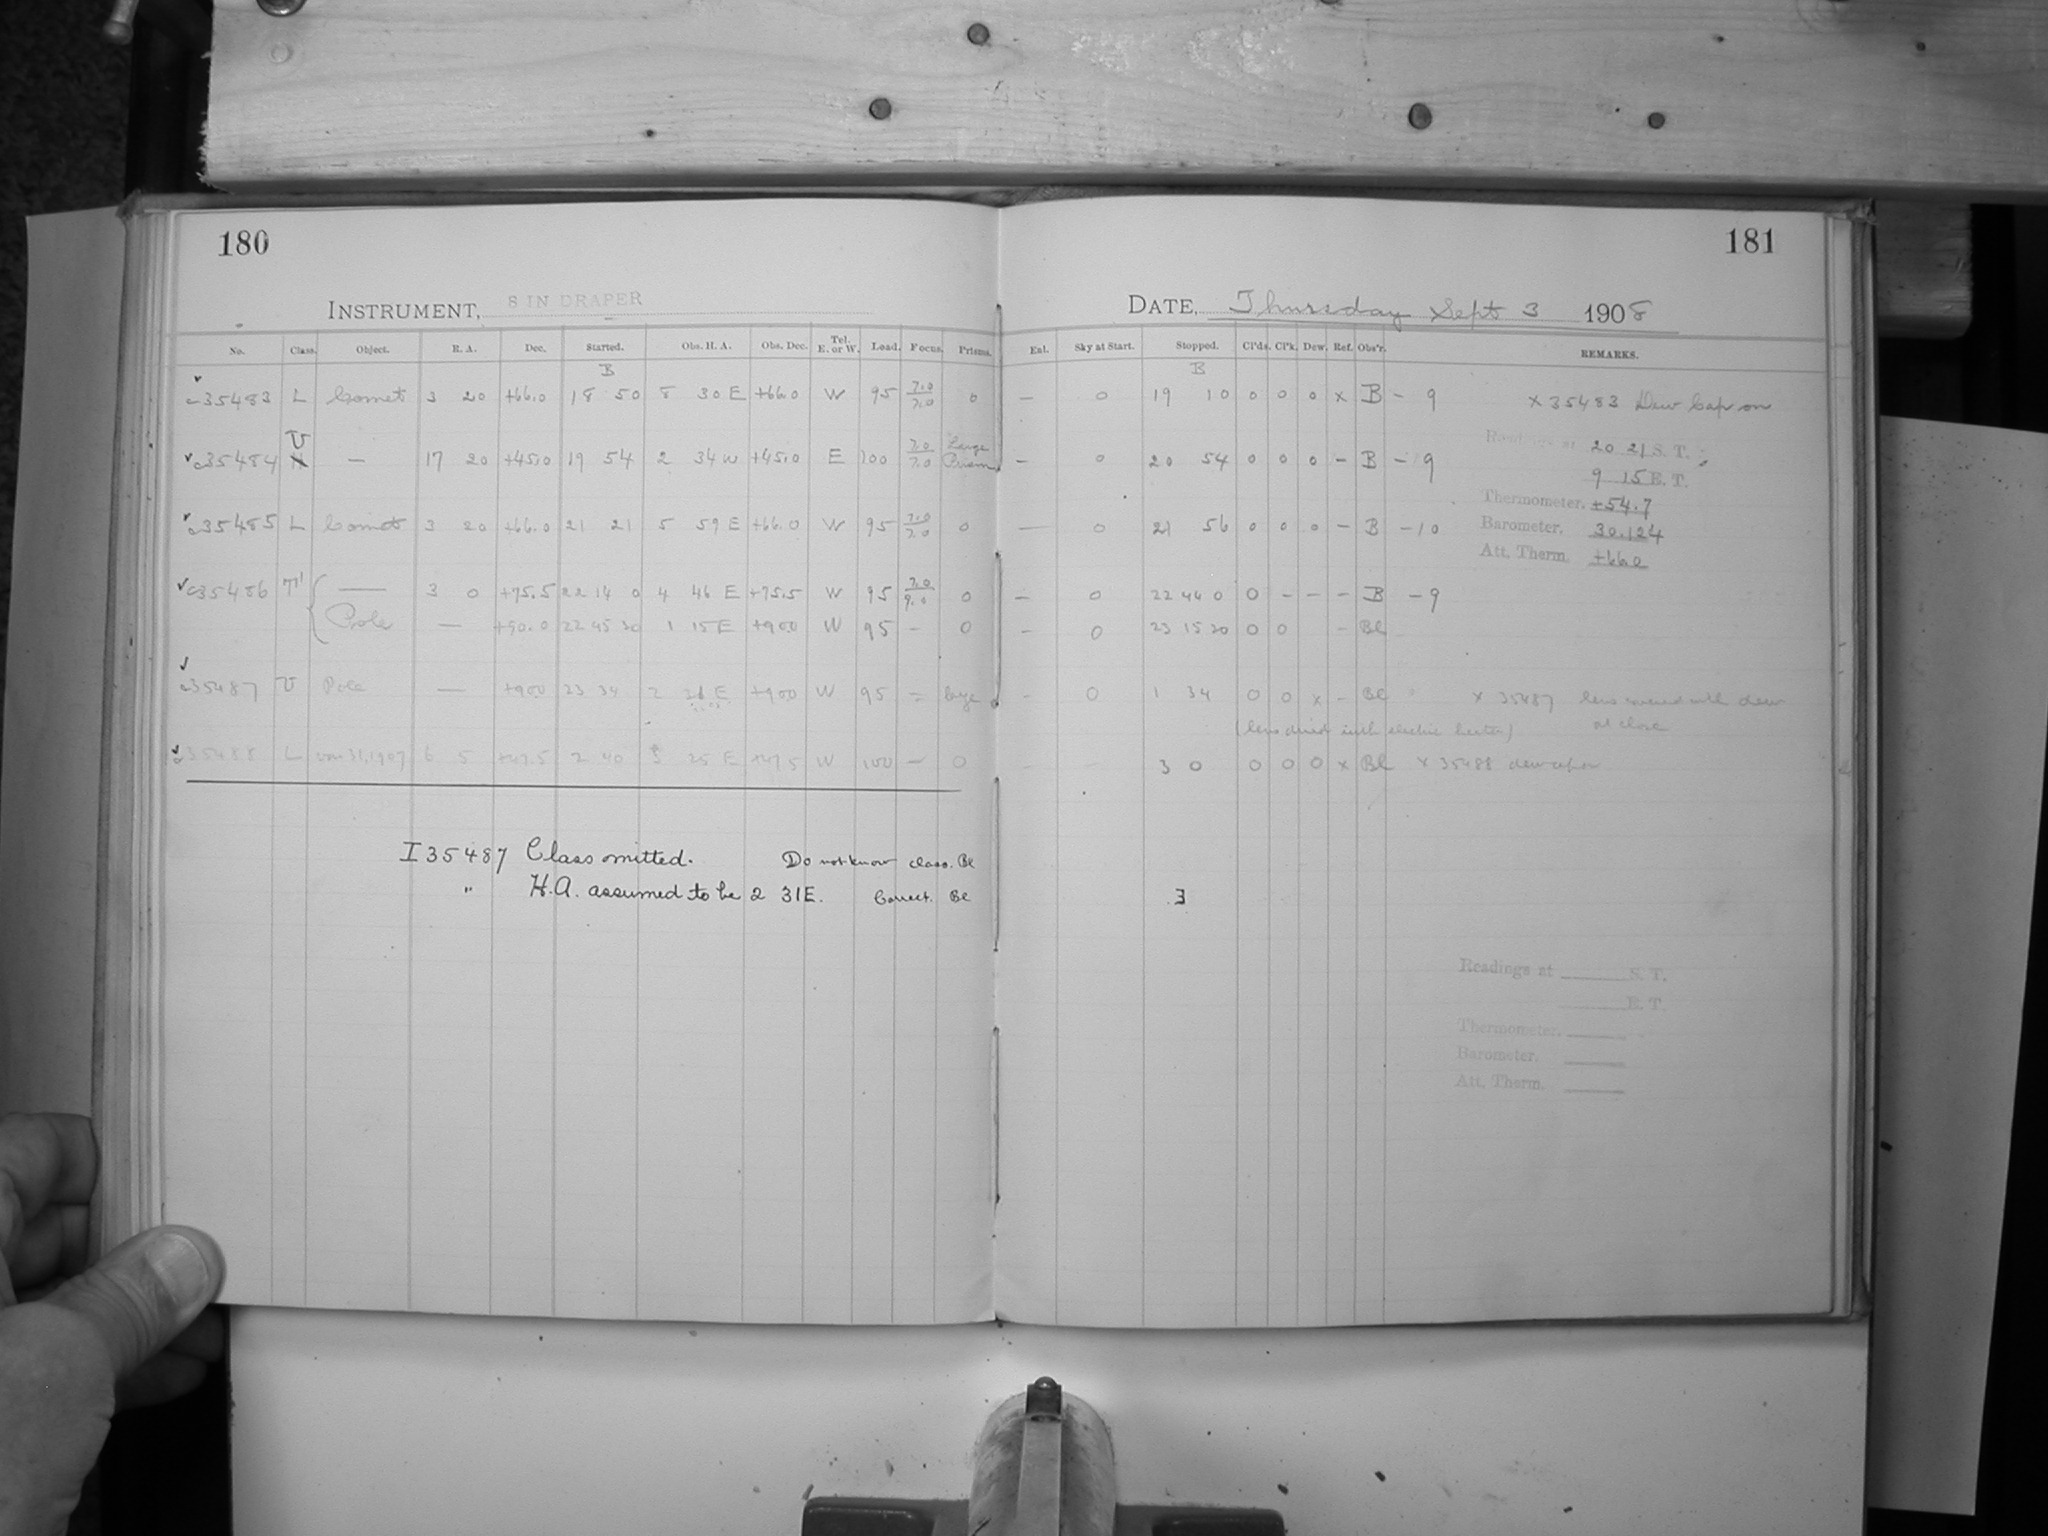 180
INSTRUMENT, 8 IN DRAPER
No. Class. Object. R. A. Dec. Started. Obs. H. A. Obs. Dec. Tel. E. or W. Load. Focus. Prisms.
B
c35483 L Comet 3 20 +66.0 18 50 8 30 E +66.0 W 95 7.0/7.0 0
U
c35484 — 17 20 +45.0 19 54 2 34 W +45.0 E 100 7.0/7.0 Large Prism
c35485 L Comet 3 20 +66.0 21 21 5 59 E +66.0 W 95 7.0/7.0 0
c35486 — 3 0 +75.5 22 14 0 4 46 E +75.5 W 95 0
Pole — +90.0 22 45 30 1 15 E +900 W 95 – 0
c35487 U Pole — +900 23 34 2 E +900 W 95 = large
35488 L 31,1907 6 5 +47.5 2 40 25 E +47.5 W 100 – 0
I 35487 Class omitted. Do not know class. Bl
" H.A. assumed to be 2 31E. Correct. Bl
181
DATE, Thursday Sept 3 1908
Ext. Sky at Start. Stopped. Cl'ds. Cl'k. Dew. Ref. Obs'r. REMARKS.
B
– 0 19 10 0 0 0 x B – 9 x 35483 Dew Cap on
Readings at 20 21 S. T.
– 0 20 54 0 0 0 – B – 9
9 15 E. T.
Thermometer. +54.7
— 0 21 56 0 0 0 – B – 10
Barometer. 30.124
Att. Therm. +66.0
– 0 22 44 0 0 – – – B – 9
– 0 23 15 30 0 0 – Bl
– 0 1 34 0 0 x – Bl x 35487 lens covered with dew
at close
(lens dried with electric heater)
3 0 0 0 0 x Bl x 35488 dew cap on
3
Readings at S. T.
E. T.
Thermometer.
Barometer.
Att. Therm.